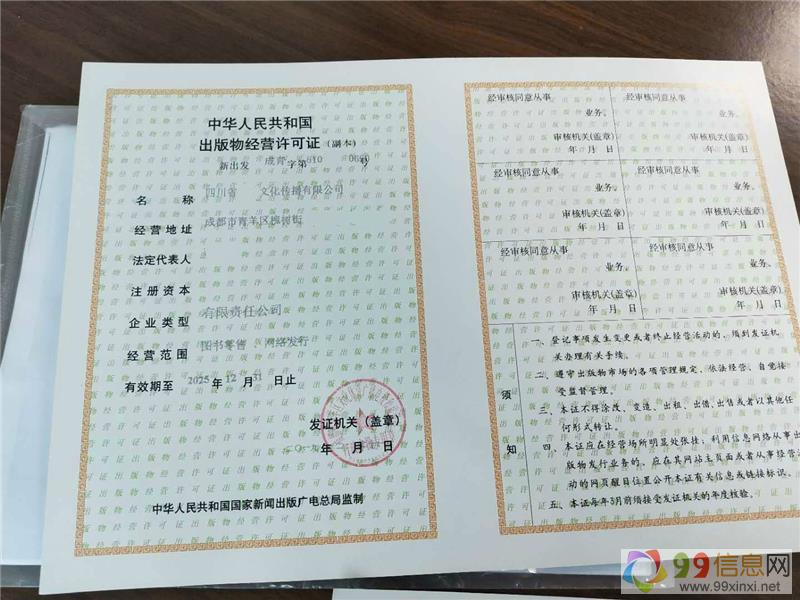 中华人民共和国
出版物经营许可证(副本)
新出发 成青 字第 号
名称 四川省 文化传播有限公司
经营地址 成都市青羊区槐树街
法定代表人
注册资本
企业类型 有限责任公司
经营范围 图书零售 网络发行
有效期至 2025年12月31日止
发证机关(盖章)
年 月 日
中华人民共和国国家新闻出版广电总局监制
经审核同意从事
业务。
审核机关(盖章)
年 月 日
经审核同意从事
业务。
审核机关(盖章)
年 月 日
经审核同意从事
业务。
审核机关(盖章)
年 月 日
经审核同意从事
业务。
审核机关(盖章)
年 月 日
经审核同意从事
业务。
审核机关(盖章)
年 月 日
经审核同意从事
业务。
审核机关(盖章)
年 月 日
须知
一、登记事项发生变更或者终止经营活动的,须到发证机
关办理有关手续。
二、遵守出版物市场的各项管理规定,依法经营、自觉接
受监督管理。
三、本证不得涂改、变造、出租、出借、出售或者以其他任
何形式转让。
四、本证应在经营场所明显处张挂,利用信息网络从事出
版物发行业务的,应在其网站主页面或者从事经营活
动的网页醒目位置公开本证有关信息或链接标识。
五、本证每年3月前须接受发证机关的年度核验。
99信息网
www.99xinxi.net